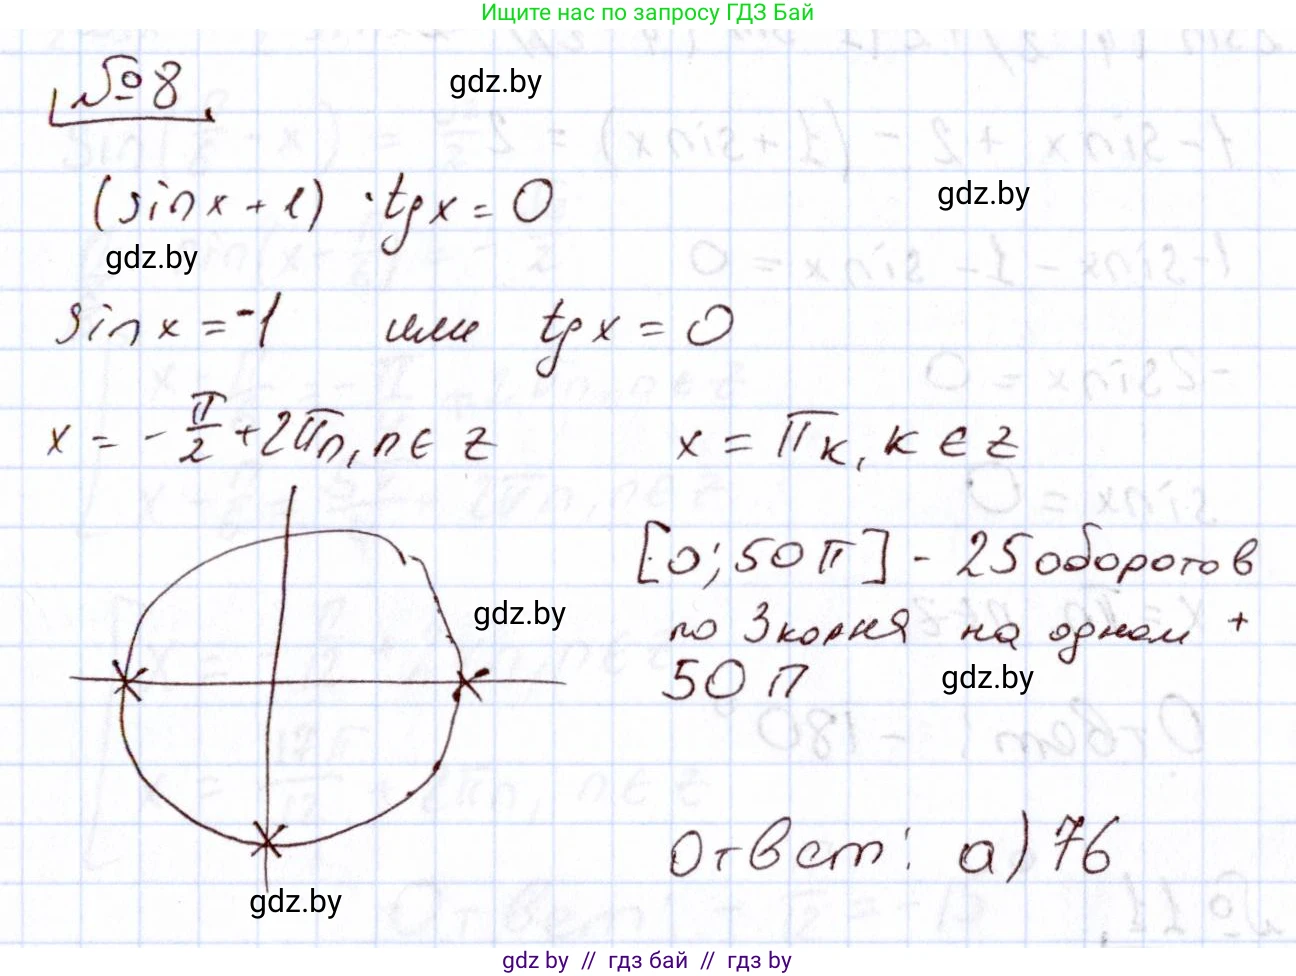 Ищите нас по запросу ГДЗ Бай
№8
gdz.by
(sin x + 1) · tg x = 0
gdz.by
gdz.by
sin x = -1 или tg x = 0
x = - π/2 + 2πn, n ∈ z x = πk, k ∈ z
[0; 50π] - 25 оборотов
gdz.by
по 3 корня на одном +
50 π
gdz.by
Ответ: а) 76
gdz.by
gdz by // гдз бай // гдз by